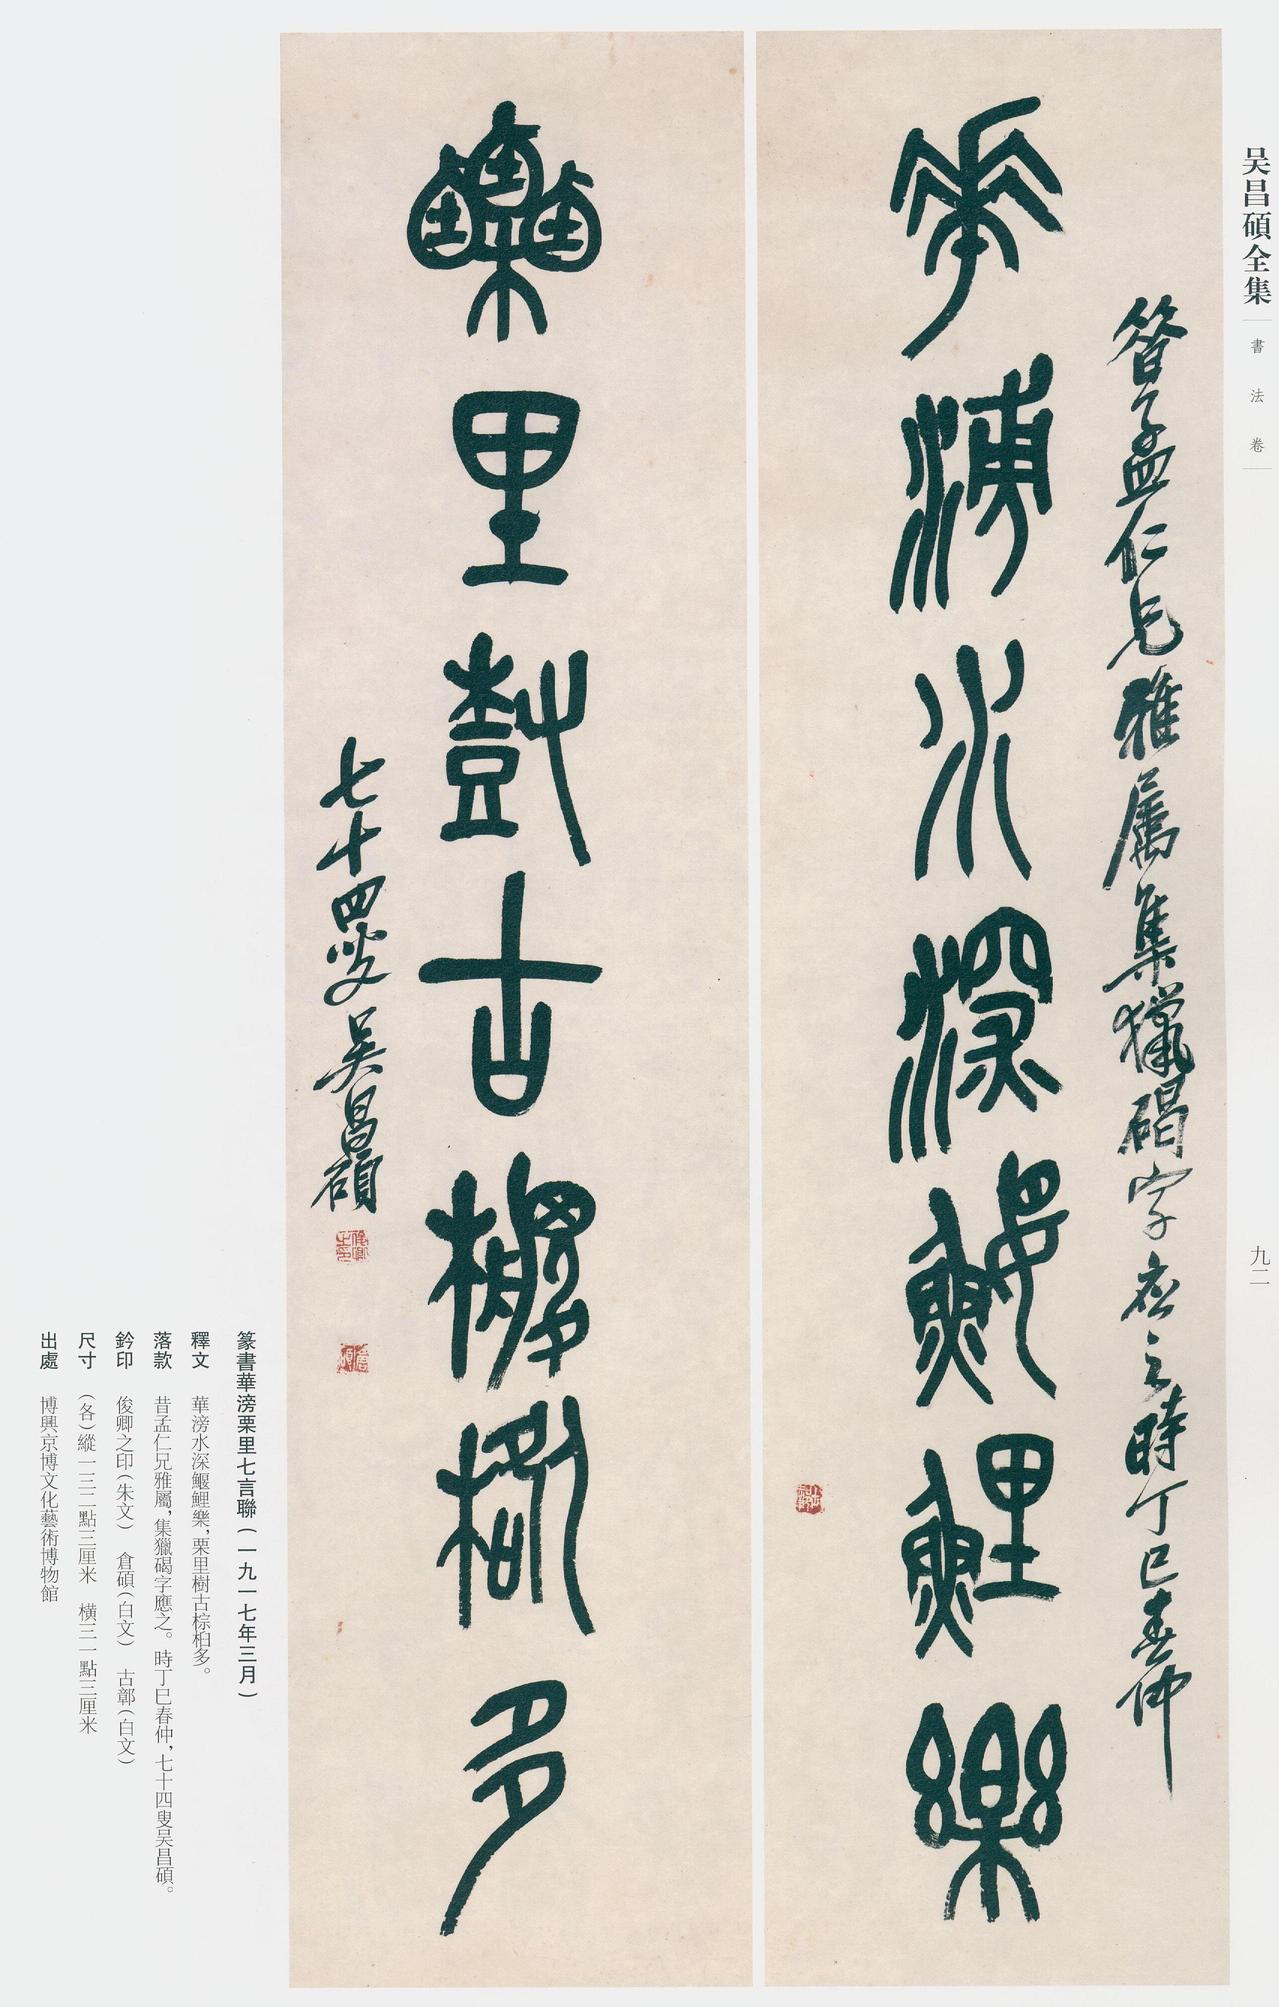 吴昌碩全集
書法卷
九二
華滂水深鰋鯉樂
㫺孟仁兄雅属集獵碣字应之時丁巳春仲
栗里樹古椶桕多
七十四叟吴昌碩
俊卿之印
倉碩
篆書華滂栗里七言聯（一九一七年三月）
釋文　華滂水深鰋鯉樂，栗里樹古棕桕多。
落款　昔孟仁兄雅屬，集獵碣字應之。時丁巳春仲，七十四叟吴昌碩。
鈐印　俊卿之印（朱文）　倉碩（白文）　古鄣（白文）
尺寸　（各）縱一三二點三厘米　橫三一點三厘米
出處　博興京博文化藝術博物館